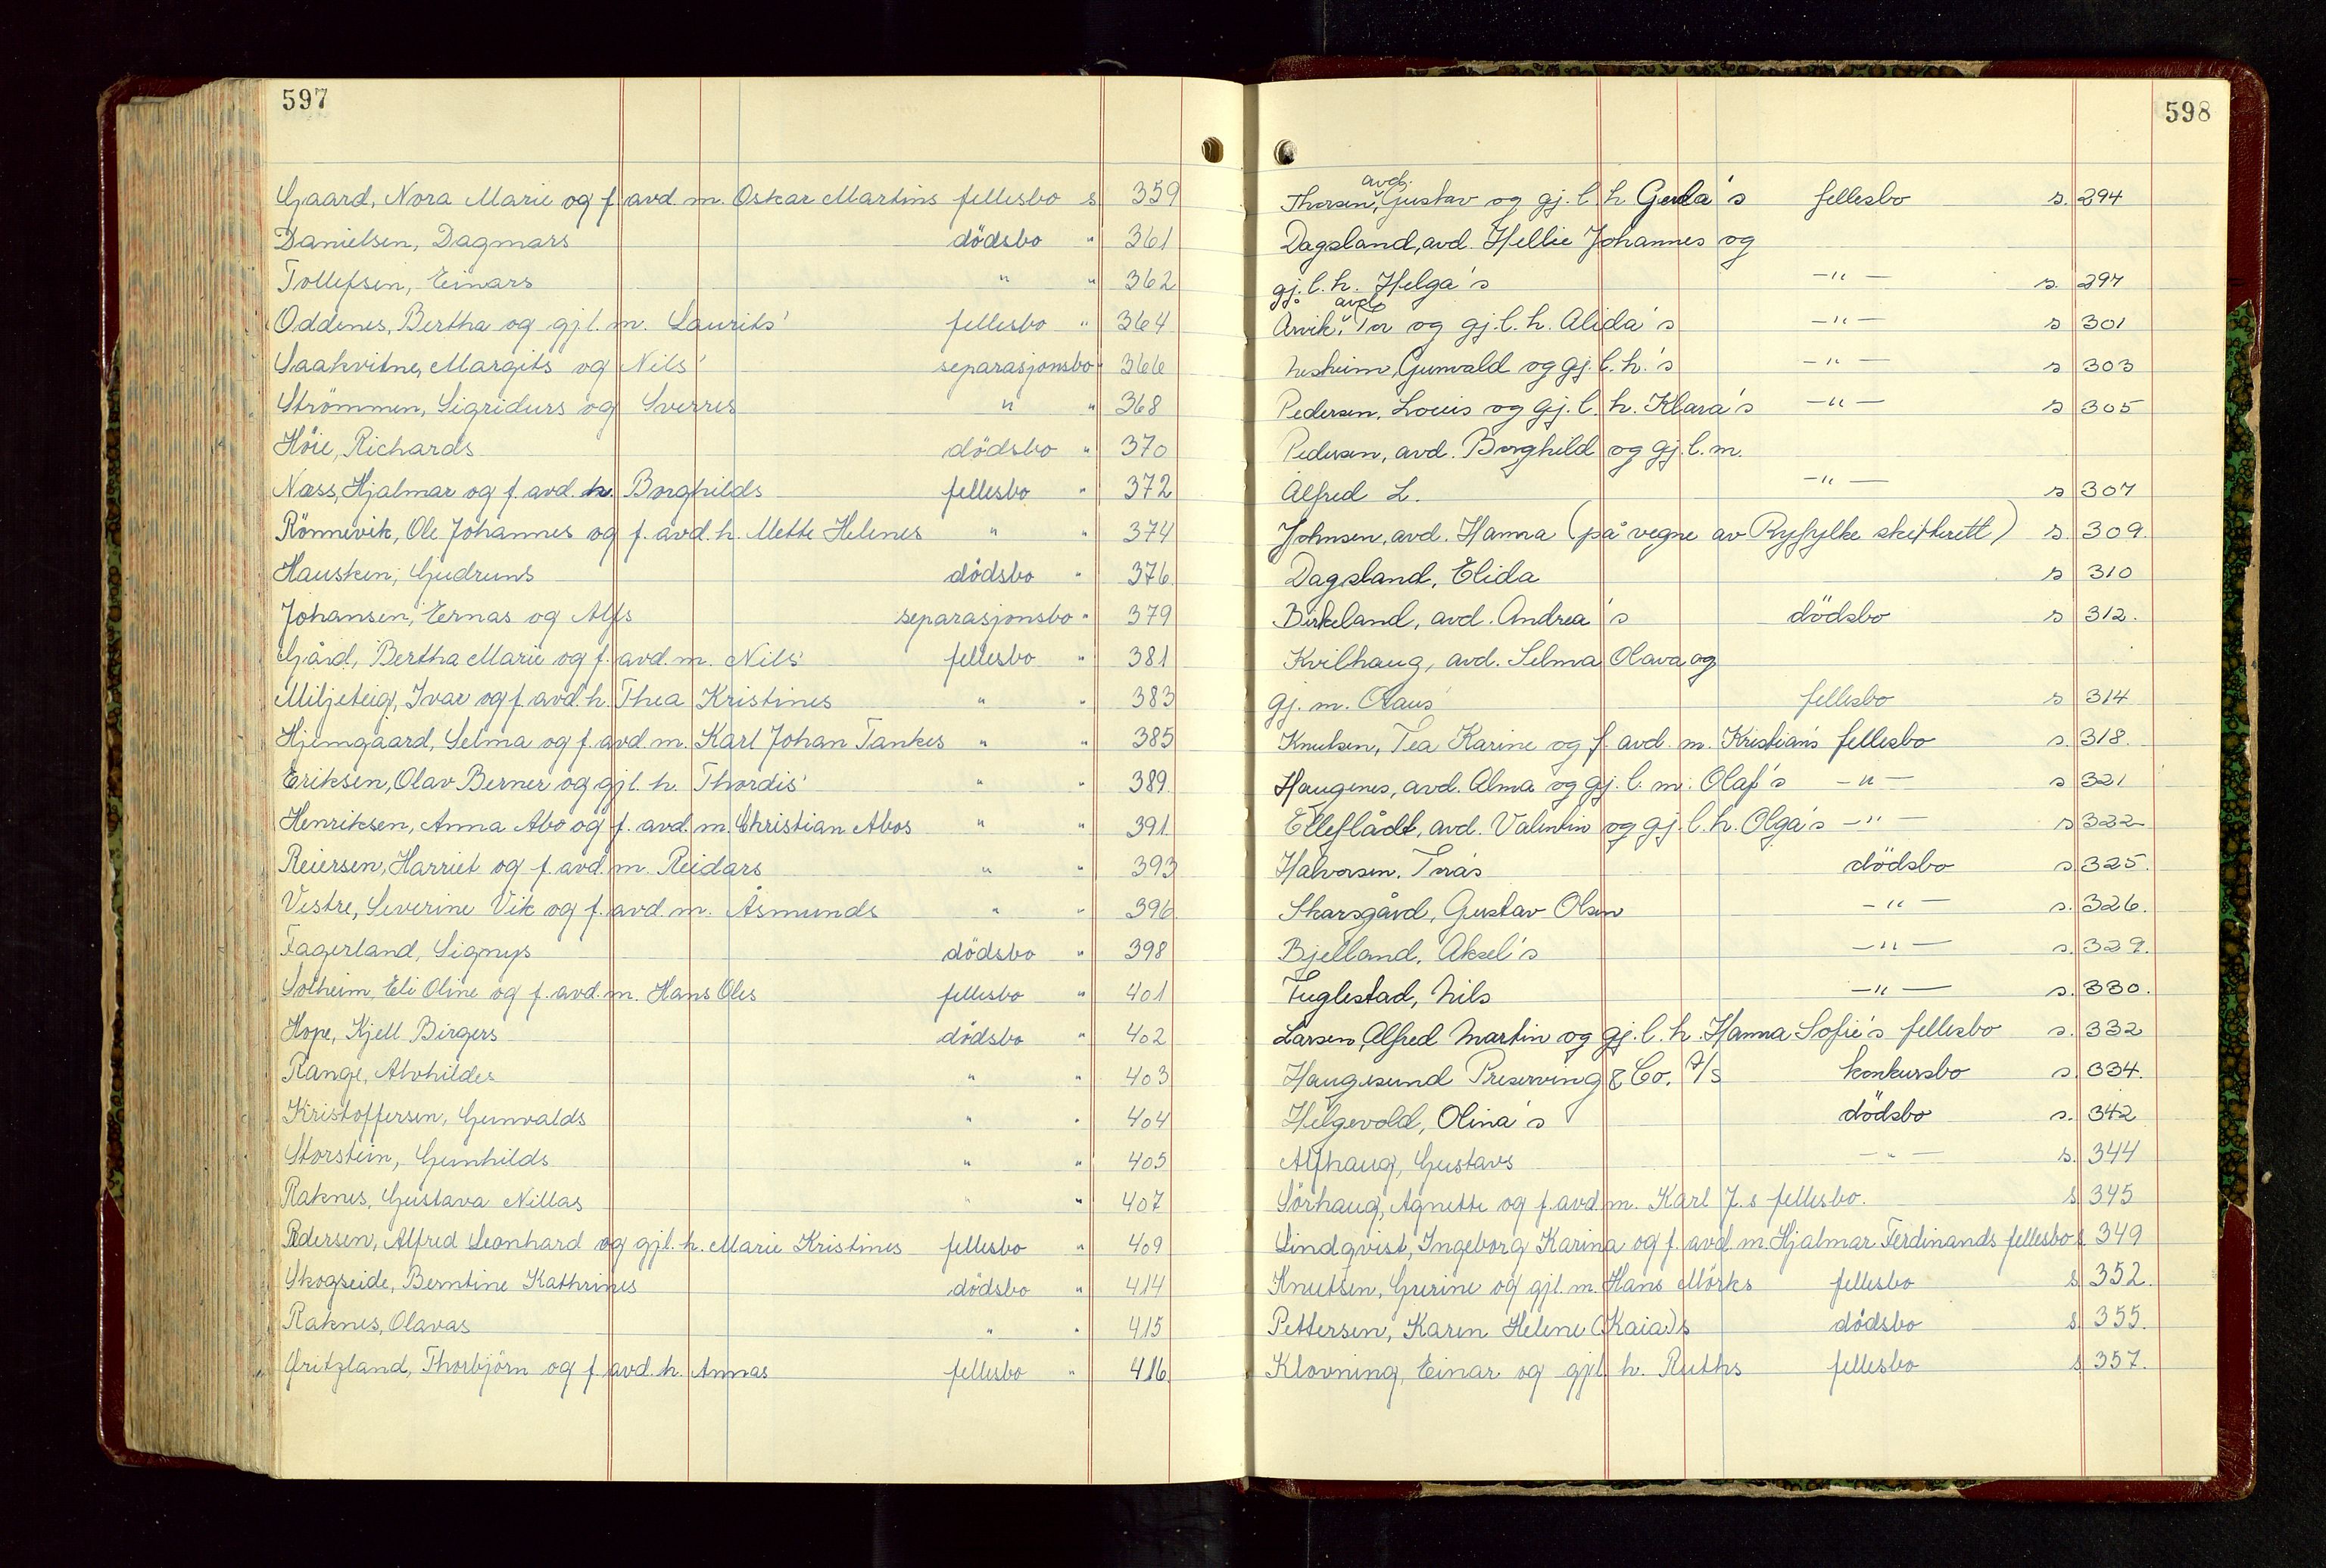 597
Gaard, Nora Marie og f. avd. m. Oskar Martins fellesbo s 359
Danielsen, Dagmars dödsbo " 361
Tollefsen, Einars " " 362
Oddenes, Bertha og gjl. m. Laurits' fellesbo " 364
Saakvitne, Margits og Nils' separasjonsbo " 366
Strömmen, Sigridurs og Sverres " " 368
Höie, Richards dödsbo " 370
Næss, Hjalmar og f. avd. h. Borghilds fellesbo " 372
Rönnevik, Ole Johannes og f. avd. h. Mette Helenes " " 374
Hausken, Gudruns dödsbo " 376
Johansen, Ernas og Alfs separasjonsbo " 379
Gård, Bertha Marie og f. avd. m. Nils' fellesbo " 381
Miljeteig, Ivar og f. avd. h. Thea Kristines " " 383
Hjemgaard, Selma og f. avd. m. Karl Johan Tankes " " 385
Eriksen, Olav Berner og gjl. h. Thordis' " " 389.
Henriksen, Anna Abo og f. avd. m. Christian Abos " " 391
Reiersen, Harriet og f. avd. m. Reidars " " 393
Vestre, Severine Vik og f. avd. m. Åsmunds " " 396.
Fagerland, Signys dödsbo " 398
Solheim, Eli Oline og f. avd. m. Hans Oles fellesbo " 401
Hope, Kjell Birgers dödsbo " 402
Range, Alvhildes " " 403
Kristoffersen, Gunvalds " " 404
Storstein, Gunhilds " " 405
Raknes, Gustava Nillas " " 407
Pedersen, Alfred Leonhard og gjl. h. Marie Kristines fellesbo " 409
Skogseide, Berntine Kathrines dödsbo " 414
Raknes, Olavas " " 415
Fritzland, Thorbjörn og f. avd. h. Annas fellesbo " 416.
598
Thorsen, avd. Gustav og gj. l. h. Gerda's fellesbo s. 294
Dagsland, avd. Hellie Johannes og
gj. l. h. Helga's —"— s. 297
Arvik, avd. Tor og gj. l. h. Alida's —"— s 301
Nesheim, Gunvald og gj. l. h.'s —"— s 303
Pedersen, Louis og gj. l. h. Klara's —"— s 305
Pedersen, avd. Borghild og gj. l. m.
Alfred L. —"— s 307
Johnsen, avd. Hanna (på vegne av Ryfylke skifterett) s. 309.
Dagsland, Elida s 310
Birkeland, avd. Andrea's dödsbo s 312.
Kvilhaug, avd. Selma Olava og
gj. m. Olaus' fellesbo s 314
Knutsen, Tea Karine og f. avd. m. Kristian's fellesbo s. 318.
Haugenes, avd. Alma og gj. l. m. Olaf's —"— s 321
Elleflådt, avd. Valentin og gj. l. h. Olga's —"— s 322
Halvorsen, Toras dödsbo s. 325.
Skarsgård, Gustav Olsen —"— s. 326.
Bjelland, Aksel's —"— s. 329.
Fuglestad, Nils —"— s. 330.
Larsen, Alfred Martin og gj. l. h. Hanna Sofie's fellesbo s. 332
Haugesund Preserving & Co. A/s konkursbo s. 334.
Helgevold, Olina's dödsbo s. 342
Alfhaug, Gustavs —"— s. 344
Sörhaug, Agnette og f. avd. m. Karl J.s fellesbo. s 345
Lindqvist, Ingeborg Karina og f. avd. m. Hjalmar Ferdinands fellesbo s. 349
Knutsen, Grerine og gjl. m. Hans Mörks fellesbo s 352.
Pettersen, Karen Helene (Kaia)s dödsbo s 355.
Klovning, Einar og gjl. h. Ruths fellesbo s 357.